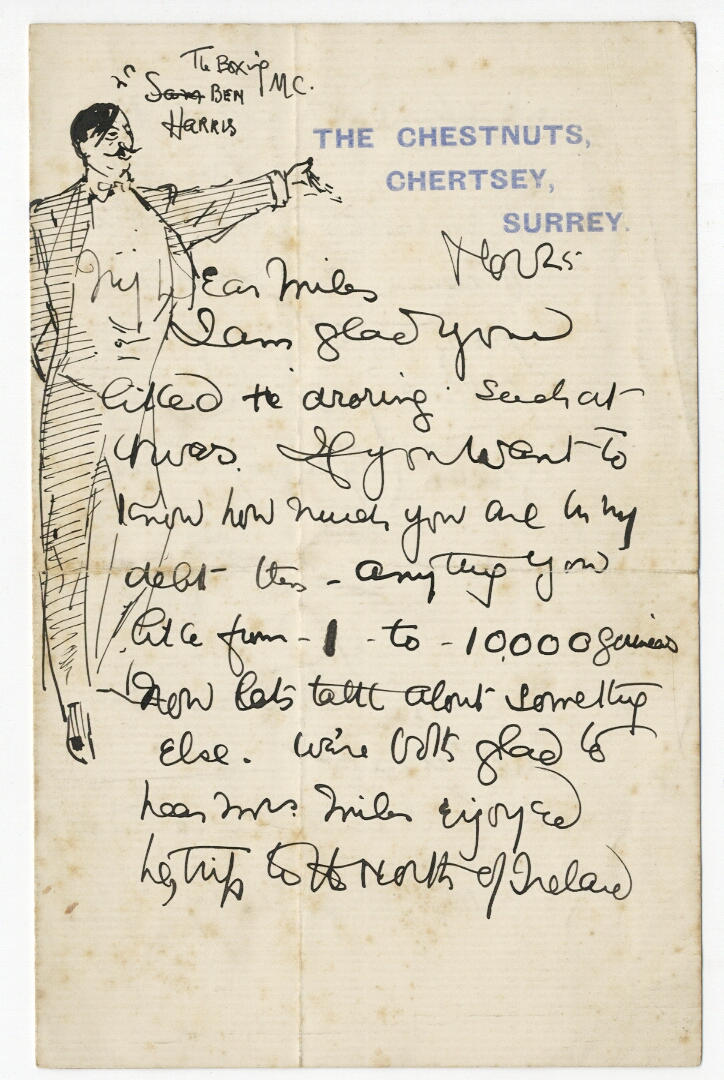 The Boxing
M.C.
Sam BEN
HARRIS
THE CHESTNUTS,
CHERTSEY,
SURREY.
Nov 25
My Dear Miles
I am glad you
liked the droring such as
it was. If you want to
know how much you are in my
debt its - anything you
like from - 1 - to - 10,000 guineas
Now lets talk about something
Else. We're both glad to
hear Mrs. Miles enjoyed
her trip to the North of Ireland